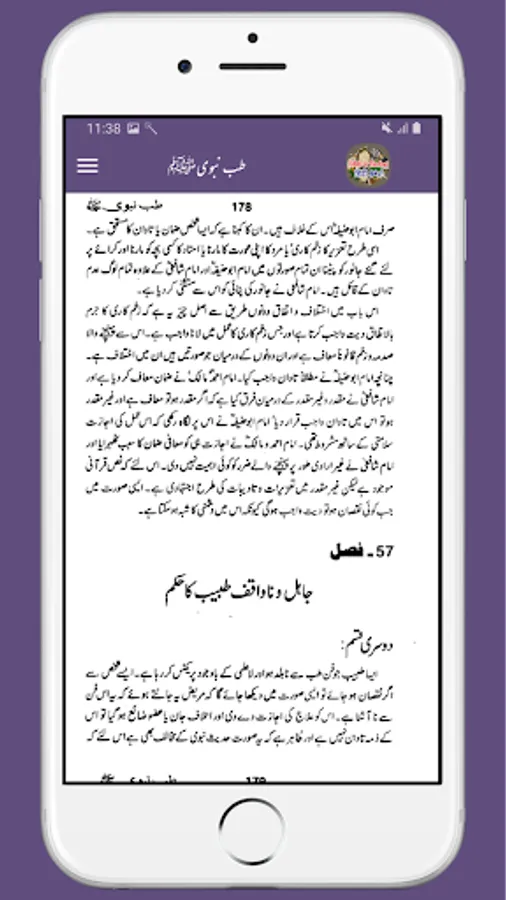 11:38
طب نبوی ﷺ
طب نبوی۔ﷺ 178
صرف امام ابوحنیفہؒ اس کے خلاف ہیں۔ ان کا کہنا ہے کہ ایسا شخص ضمان یا تاوان کا مستحق ہے۔
اسی طرح تعزیر کا زخم کاری یا مرد کا اپنی عورت کا مارنا یا استاد کا کسی بچہ کو مارنا اور کرائے پر
لئے گئے جانور کو پیٹنا ان تمام صورتوں میں امام ابوحنیفہؒ اور امام شافعیؒ کے علاوہ تمام لوگ عدم
تاوان کے قائل ہیں۔ امام شافعیؒ نے جانور کی پٹائی کو اس سے مستثنیٰ کر دیا ہے۔
اس باب میں اختلاف و اتفاق دونوں طریق سے اصل چیز یہ ہے کہ زخم کاری کا جرم
بالاتفاق دیت واجب کرتا ہے اور جس زخم کاری کا عمل میں لانا واجب ہے۔ اس سے پہنچنے والا
صدمہ و زخم قانوناً معاف ہے اور ان دونوں کے درمیان جو صورتیں ہیں ان میں اختلاف ہے۔
چنانچہ امام ابوحنیفہؒ نے مطلقاً تاوان واجب کیا۔ امام احمدؒ مالکؒ نے ضمان معاف کر دیا ہے اور
امام شافعیؒ نے مقدر و غیر مقدر کے درمیان فرق کیا ہے کہ اگر مقدر ہو تو معاف ہے اور غیر مقدر
ہو تو اس میں تاوان واجب قرار دیا امام ابوحنیفہؒ نے اس پر نگاہ رکھی کہ اس عمل کی اجازت
سلامتی کے ساتھ مشروط تھی۔ امام احمد و مالکؒ نے اجازت ہی کو معافی ضمان کا سبب ٹھہرایا اور
امام شافعیؒ نے غیر ارادی طور پر پہنچنے والے ضرر کو کوئی اہمیت نہیں دی۔ اس لئے کہ نص قرآنی
موجود ہے لیکن غیر مقدر میں تعزیرات و تادیبات کی طرح اجتہادی ہے۔ ایسی صورت میں
جب کوئی نقصان ہو تو دیت واجب ہوگی کیونکہ اس میں دشمنی کا شبہ ہو سکتا ہے۔
57 ۔ فصل
جاہل و ناواقف طبیب کا حکم
دوسری قسم:
ایسا طبیب جو فن طب سے نابلد ہو اور لاعلمی کے باوجود پریکٹس کر رہا ہے۔ ایسے شخص سے
اگر نقصان ہو جائے تو ایسی صورت میں دیکھا جائے گا کہ مریض یہ جانتے ہوئے کہ یہ اس فن
سے نا آشنا ہے۔ اس کو علاج کی اجازت دے دی اور اتلاف جان یا عضو ضائع ہو گیا تو اس
کے ذمہ تاوان نہیں ہے اور ظاہر ہے کہ یہ صورت حدیث نبوی کے مخالف بھی ہے اس لئے کہ
طب نبوی۔ﷺ 179